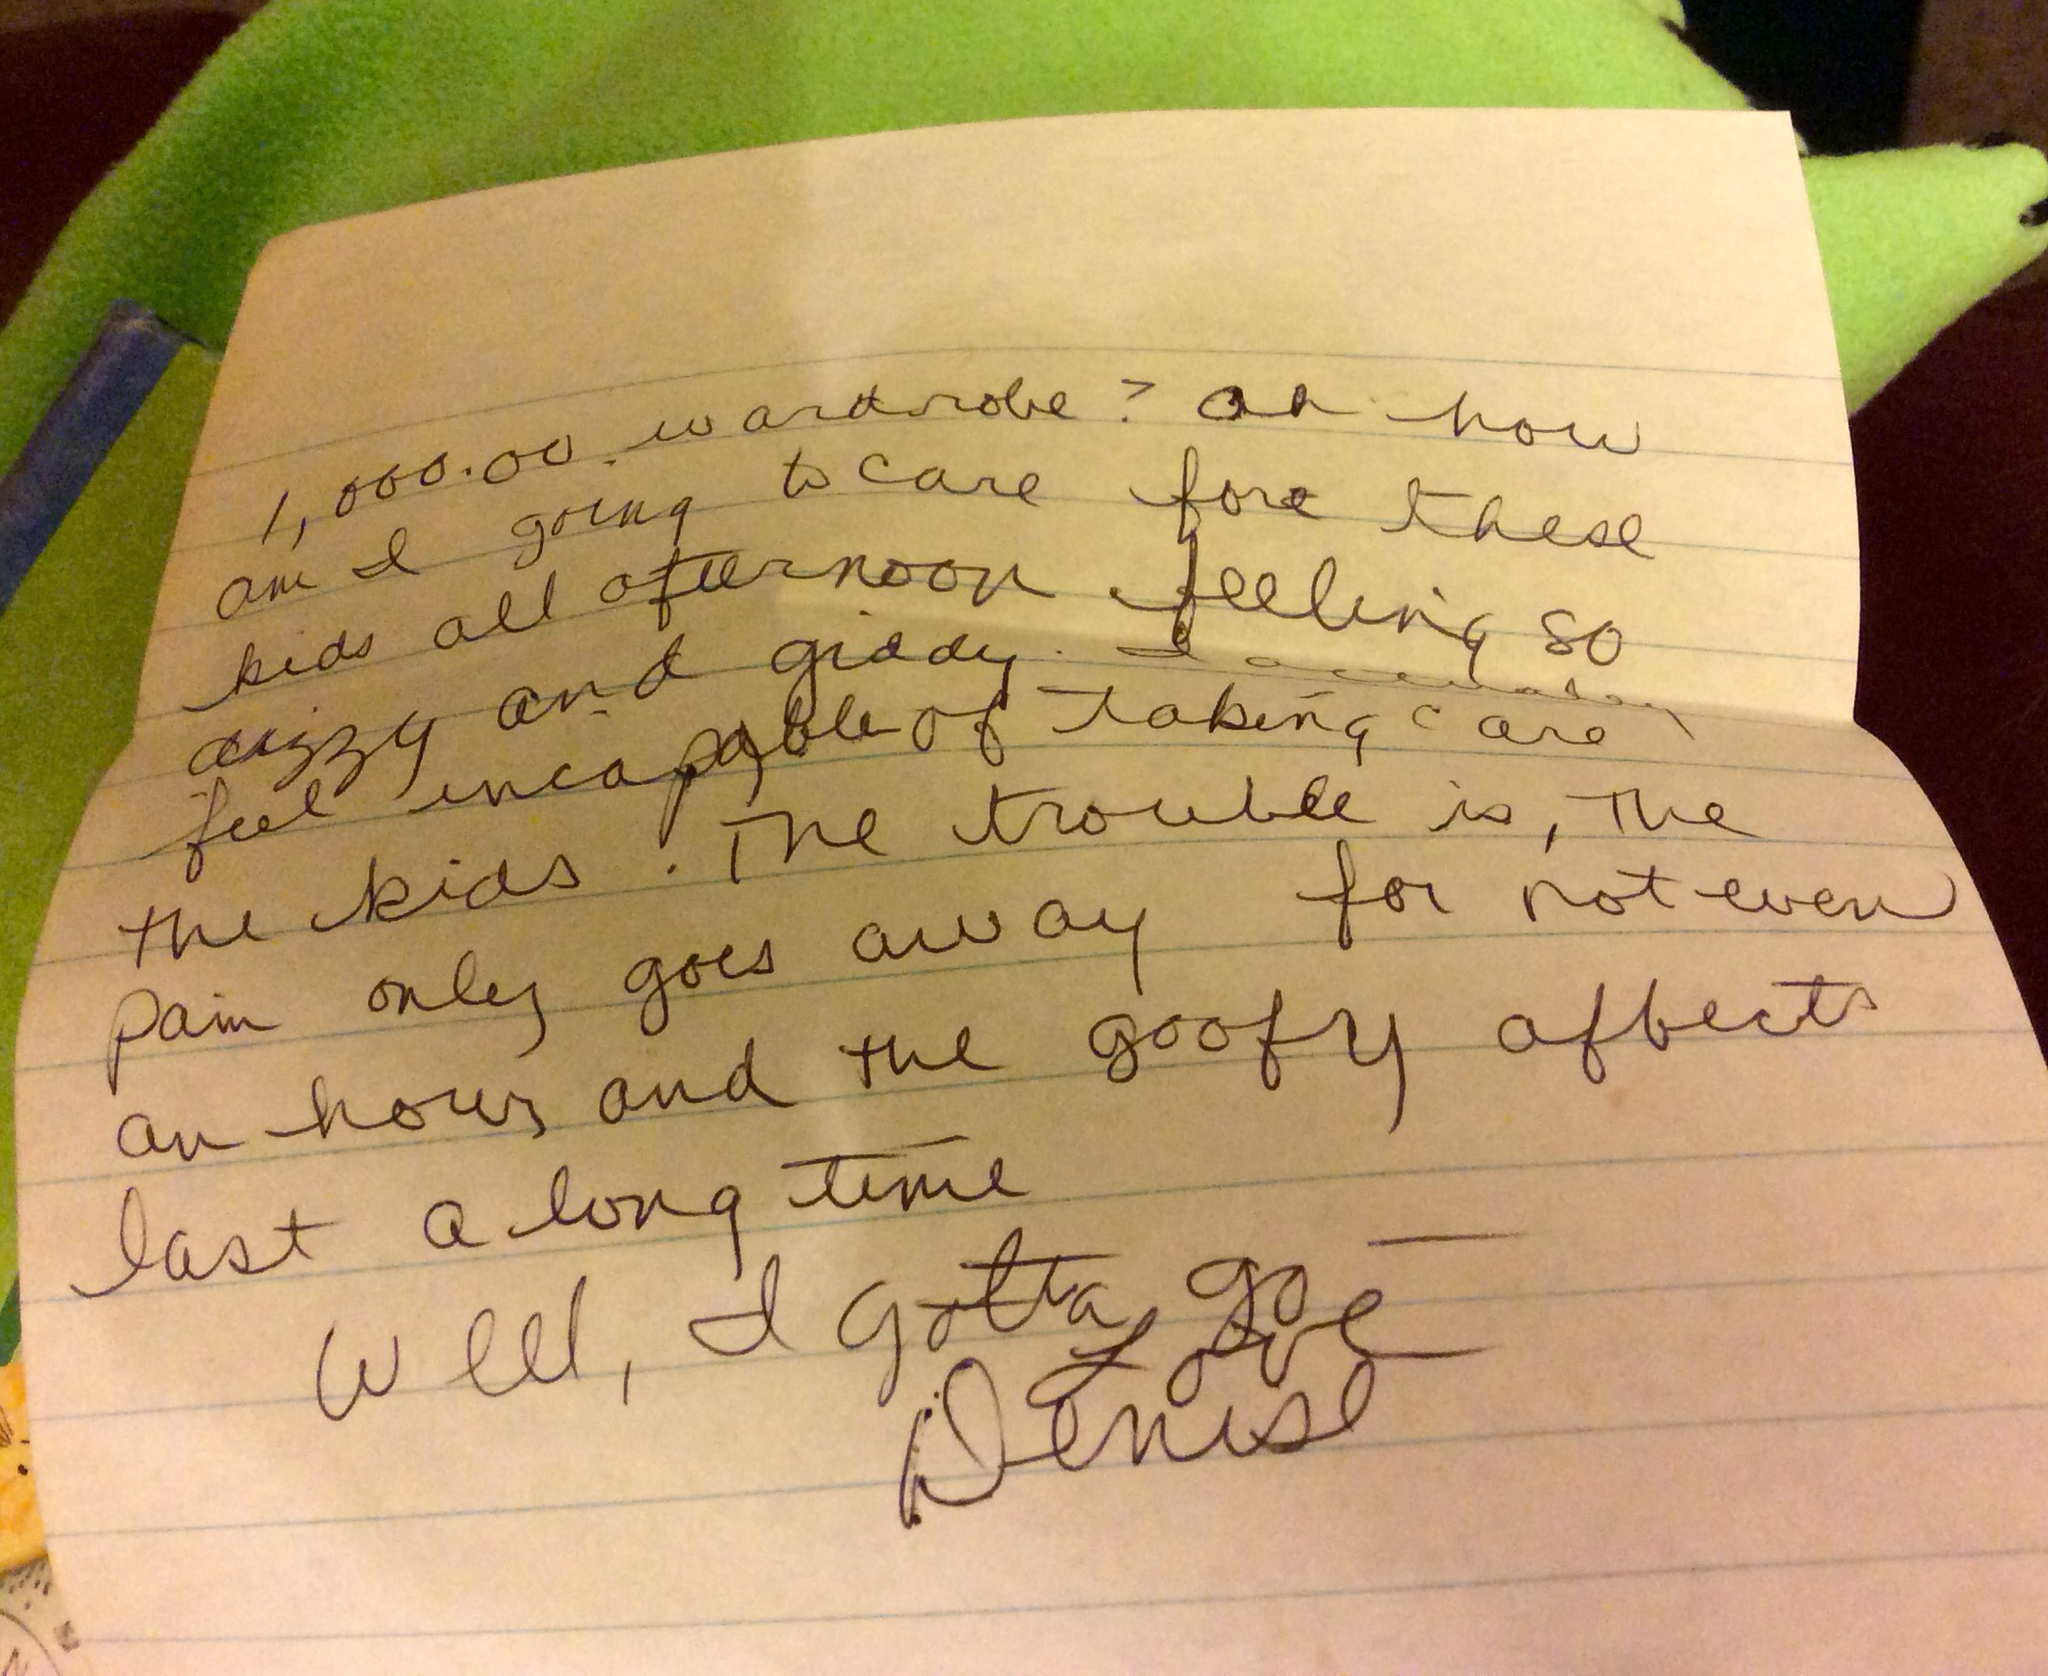 1,000.00. wardrobe? Oh how
am I going to care fore these
kids all afternoon feeling so
dizzy and giddy. I actually
feel incapable of taking care
the kids. The trouble is, the
pain only goes away for not even
an hour, and the goofy affects
last a long time
Well, I gotta go
Love
Denise